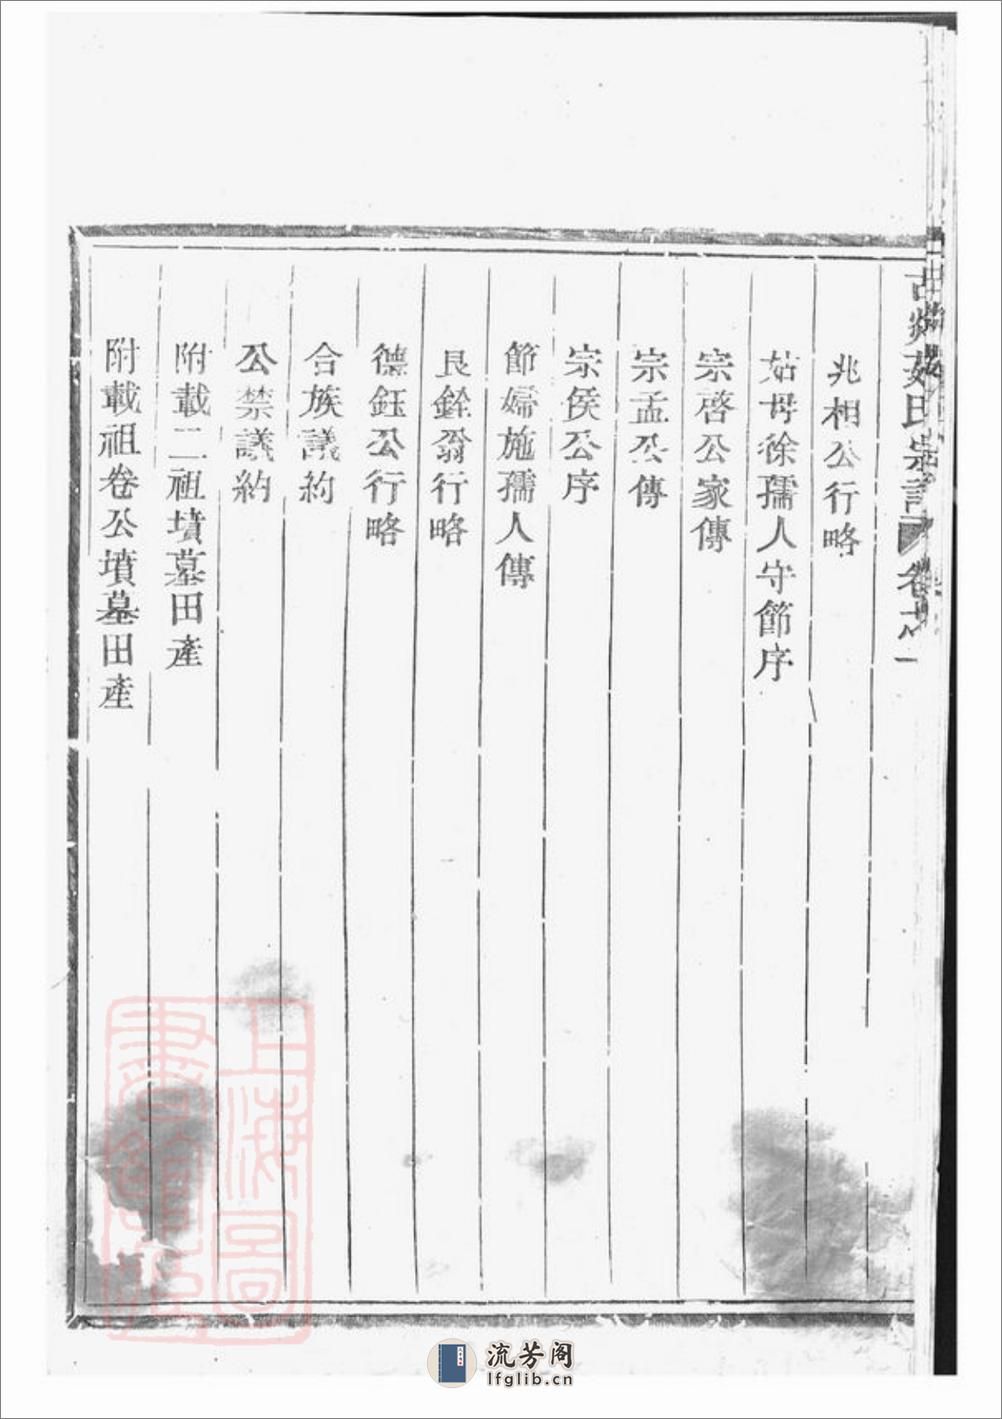 兆相公行略
姑母徐孺人守節序
宗啓公家傳
宗孟公傳
宗侯公序
節婦施孺人傳
良銓翁行略
德鈺公行略
合族議約
公禁議約
附載二祖墳墓田產
附載祖卷公墳墓田產
氏宗
上海圖書館藏
流芳阁
lfglib.cn